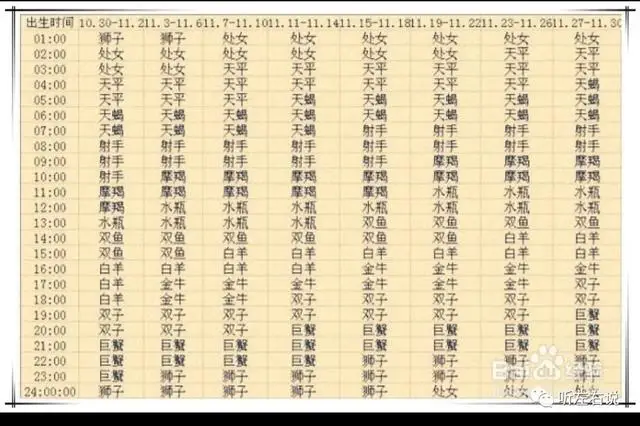 出生时间 10.30-11.2 11.3-11.6 11.7-11.10 11.11-11.14 11.15-11.18 11.19-11.22 11.23-11.26 11.27-11.30
01:00 狮子 狮子 处女 处女 处女 处女 处女 处女
02:00 处女 处女 处女 处女 处女 处女 天平 天平
03:00 处女 处女 天平 天平 天平 天平 天平 天平
04:00 天平 天平 天平 天平 天平 天平 天平 天蝎
05:00 天平 天平 天平 天平 天蝎 天蝎 天蝎 天蝎
06:00 天蝎 天蝎 天蝎 天蝎 天蝎 天蝎 天蝎 天蝎
07:00 天蝎 天蝎 天蝎 天蝎 射手 射手 射手 射手
08:00 射手 射手 射手 射手 射手 射手 射手 射手
09:00 射手 射手 射手 射手 射手 摩羯 摩羯 摩羯
10:00 射手 摩羯 摩羯 摩羯 摩羯 摩羯 摩羯 摩羯
11:00 摩羯 摩羯 摩羯 摩羯 摩羯 水瓶 水瓶 水瓶
12:00 摩羯 水瓶 水瓶 水瓶 水瓶 水瓶 水瓶 水瓶
13:00 水瓶 水瓶 水瓶 水瓶 双鱼 双鱼 双鱼 双鱼
14:00 双鱼 双鱼 双鱼 双鱼 双鱼 双鱼 白羊 白羊
15:00 双鱼 双鱼 白羊 白羊 白羊 白羊 白羊 白羊
16:00 白羊 白羊 白羊 白羊 金牛 金牛 金牛 金牛
17:00 白羊 金牛 金牛 金牛 金牛 金牛 金牛 双子
18:00 白羊 金牛 金牛 双子 双子 双子 双子 双子
19:00 双子 双子 双子 双子 双子 双子 双子 巨蟹
20:00 双子 双子 双子 巨蟹 巨蟹 巨蟹 巨蟹 巨蟹
21:00 巨蟹 巨蟹 巨蟹 巨蟹 巨蟹 巨蟹 巨蟹 巨蟹
22:00 巨蟹 巨蟹 巨蟹 巨蟹 狮子 狮子 狮子 狮子
23:00 巨蟹 狮子 狮子 狮子 狮子 狮子 狮子 狮子
24:00:00 狮子 狮子 狮子 狮子 狮子 处女 处女 处女
听左右说